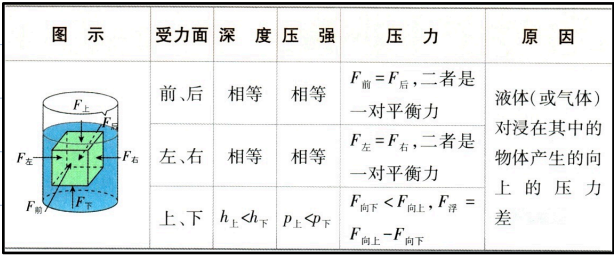 图 示 受力面 深 度 压 强 压 力 原 因
F上
F后
F左
F右
F前
F下
前、后 相等 相等 F前=F后,二者是
一对平衡力
左、右 相等 相等 F左=F右,二者是
一对平衡力
上、下 h上<h下 p上<p下 F向下<F向上,F浮=
F向上-F向下
液体(或气体)
对浸在其中的
物体产生的向
上的压力
差